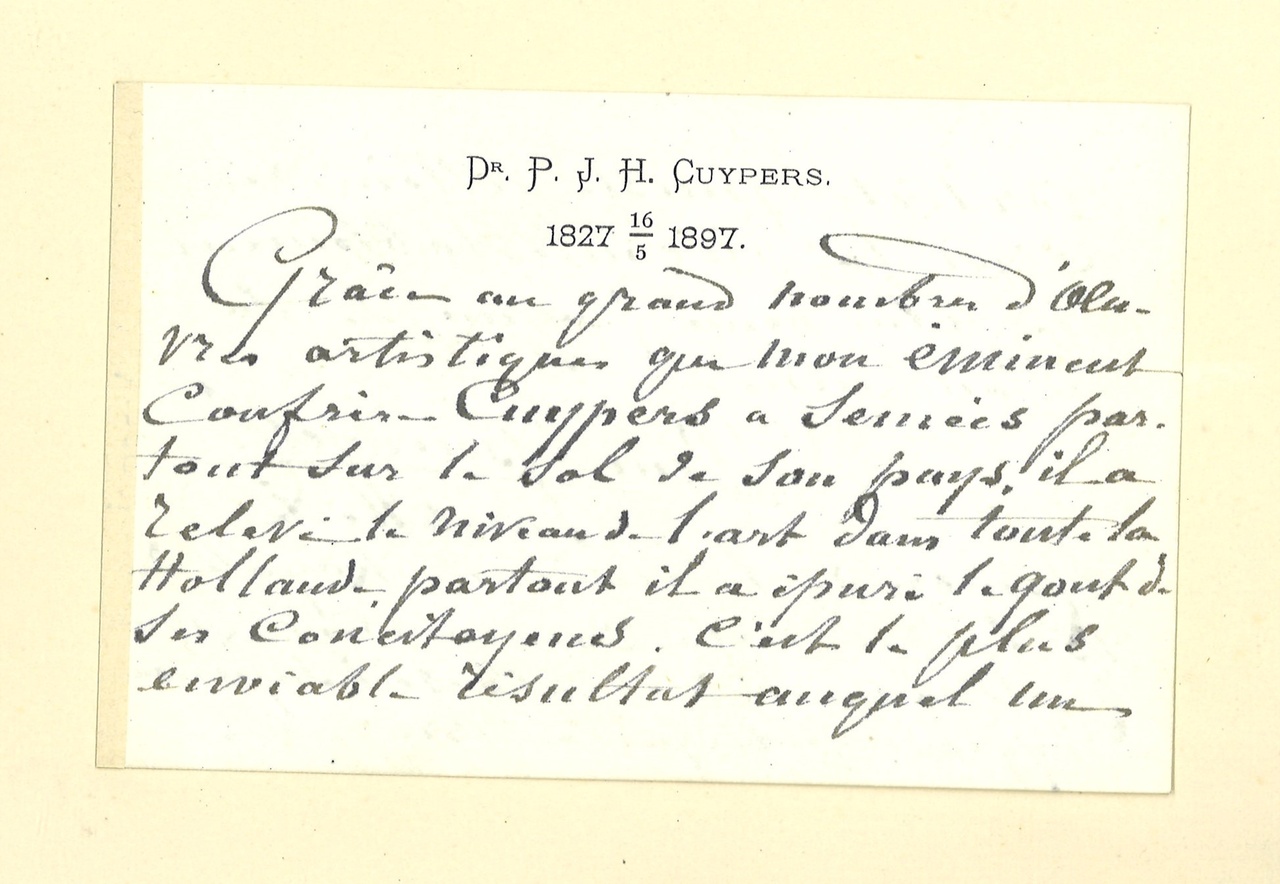 Dr. P. J. H. Cuypers.
1827 16/5 1897.
Grâce au grand nombre d'Oeu-
vres artistiques que mon éminent
Confrère Cuypers a semées par-
tout sur le sol de son pays, il a
relevé le niveau de l'art dans toute la
Hollande, partout il a épuré le gout de
ses Concitoyens. C'est le plus
enviable résultat auquel un